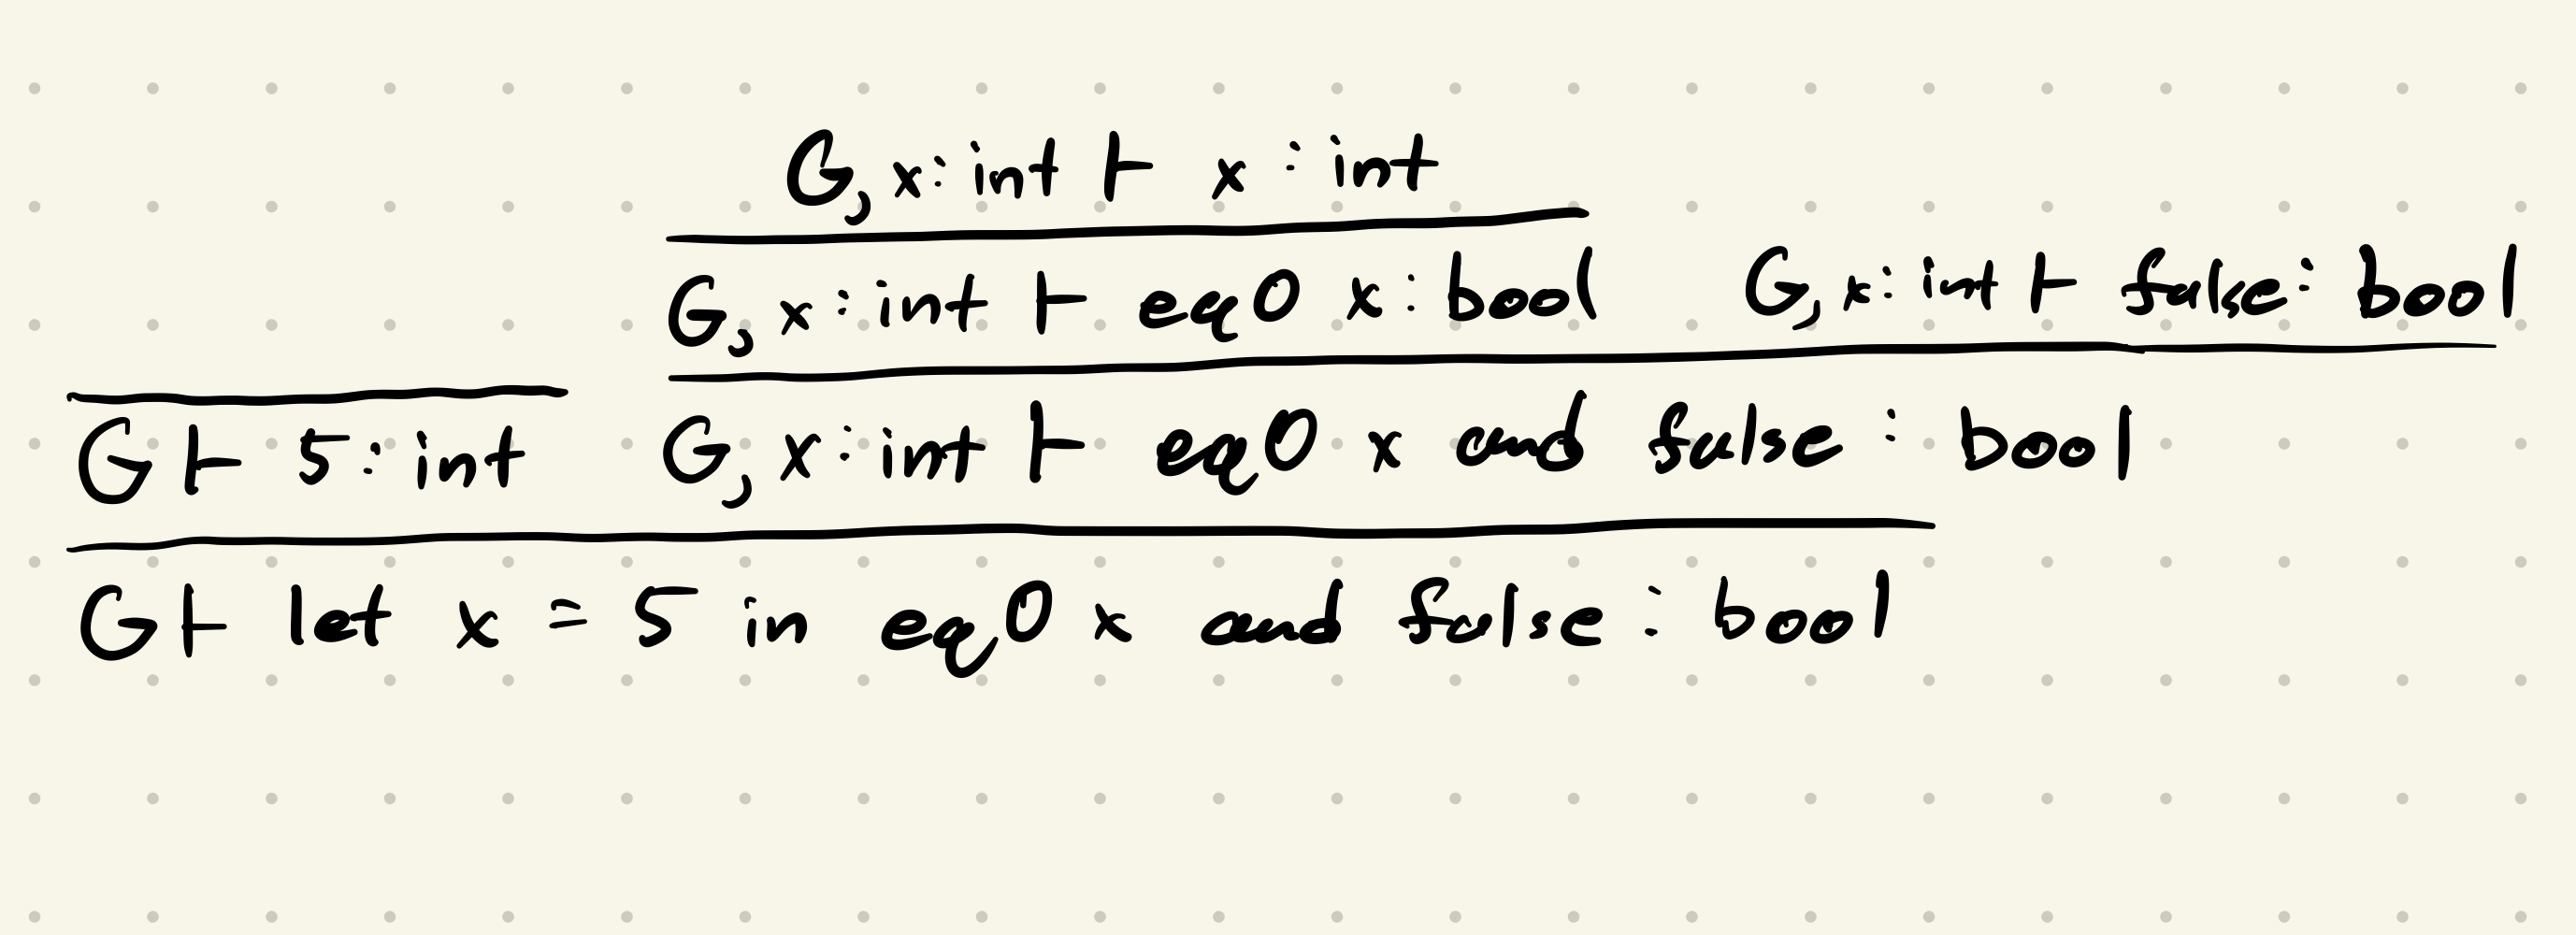 G, x: int ⊢ x : int
G, x : int ⊢ eq0 x : bool G, x : int ⊢ false : bool
G ⊢ 5 : int G, x : int ⊢ eq0 x and false : bool
G ⊢ let x = 5 in eq0 x and false : bool